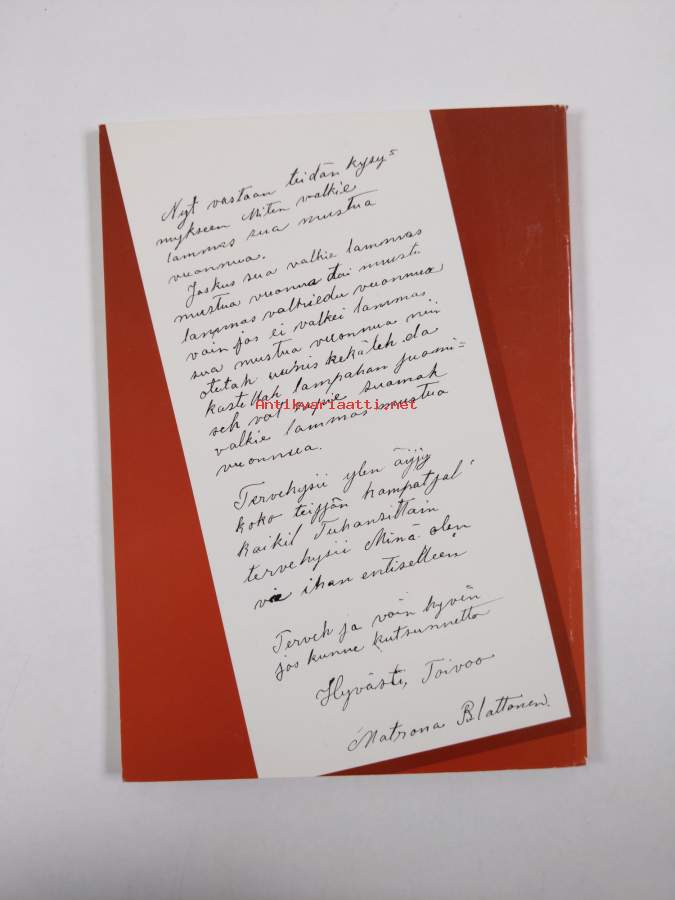 Nyt vastaan teidän kysy=
mykseen Miten valkie
lammas sua mustua
vuonnua.
Joskus sua valkie lammas
mustua vuonua tai musti
lammas valkiedu vuonnua
vain jos ei valkei lammas
sua mustua vuonnua nii
otetah uunis kekäleh da
kastellah lampahan juomi=
seh val rupie suamah
Antikvariaatti.net
valkie lammas mustua
vuonnua.
Tervehysii ylen äijy
koko teijjän
kaikil Tuhansittain
tervehysii Minä olen
vie ihan entiselleen
Terveh ja vain hyvin
jos kunne kutsunnetto
Hyvästi, Toivoo
Matrona Blattonen.